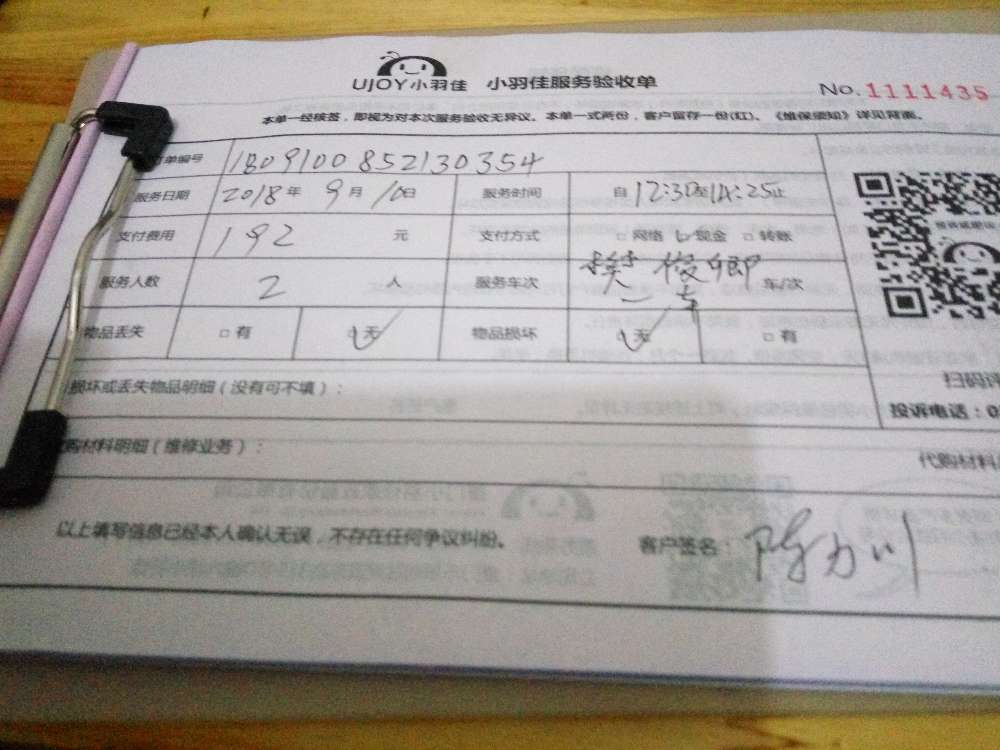 UJOY小羽佳 小羽佳服务验收单 No.1111435
本单一经核签，即视为对本次服务验收无异议。本单一式两份，客户留存一份(红)。《维保须知》详见背面。
单编号 1809100852130354
服务日期 2018年 9月 10日 服务时间 自12:30至14:25止
支付费用 192 元 支付方式 □网络 ☑现金 □转账
服务人数 2 人 服务车次 车/次
物品丢失 □有 ☑无 物品损坏 ☑无 □有
损坏或丢失物品明细（没有可不填）：
扫码评
投诉电话：0
购材料明细（维修业务）：
代购材料
以上填写信息已经本人确认无误，不存在任何争议纠纷。 客户签名：陈力川